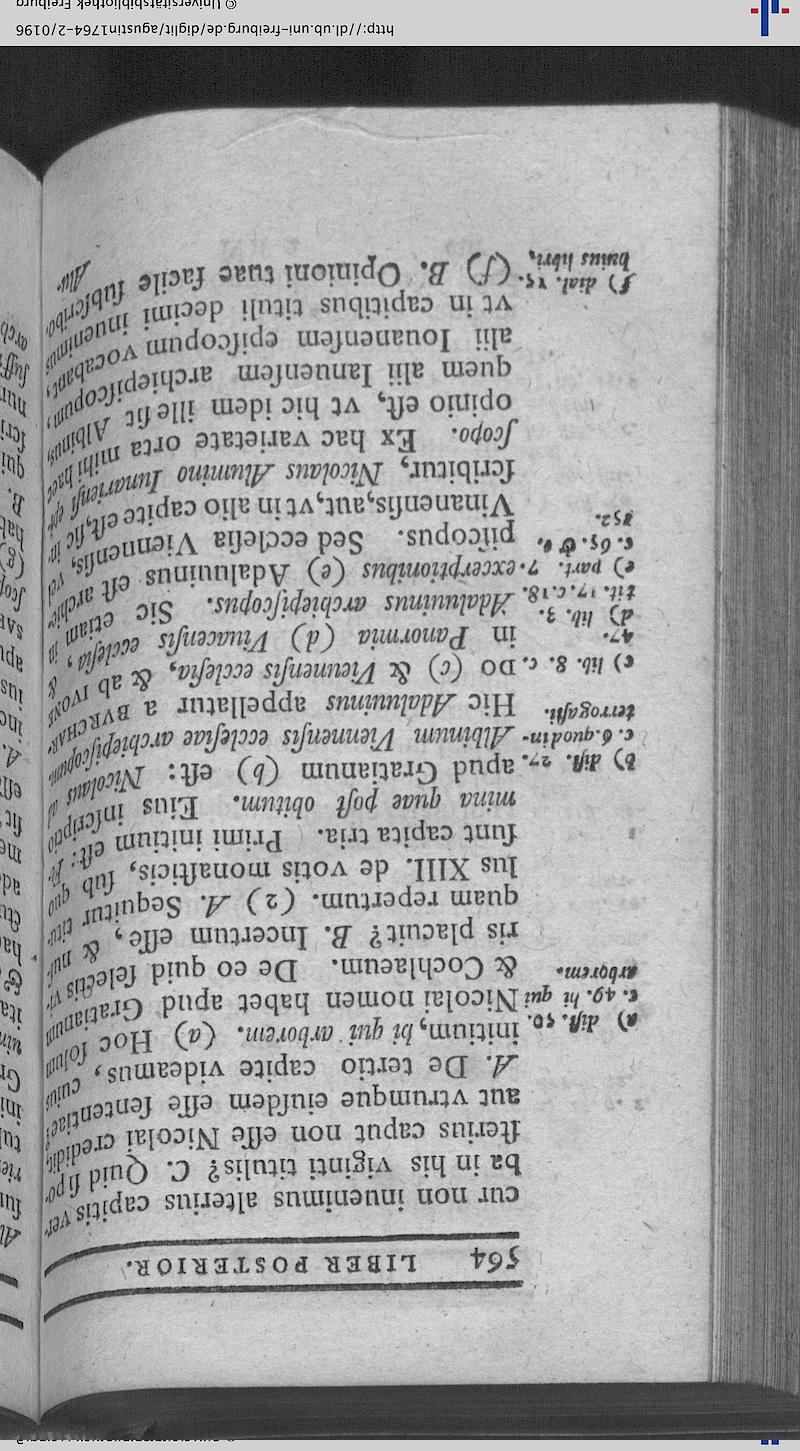 564 LIBER POSTERIOR.
cur non inuenimus alterius capitis ver-
ba in his viginti titulis? C. Quid ſi po-
ſterius caput non eſſe Nicolai credidit,
aut vtrumque eiuſdem eſſe ſententiae?
A. De tertio capite videamus, cuius
initium, hi qui arborem. (a) Hoc ſolum
Nicolai nomen habet apud Gratianum
& Cochlaeum. De eo quid ſelectis vi-
ris placuit? B. Incertum eſſe, & nuſ-
quam repertum. (2) A. Sequitur titu-
lus XIII. de votis monaſticis, ſub quo
ſunt capita tria. Primi initium eſt: Fe-
mina quae poſt obitum. Eius inſcriptio
apud Gratianum (b) eſt: Nicolaus ad
Albinum Viennenſis eccleſiae archiepiſcopum.
Hic Adaluuinus appellatur a BVRCHAR-
DO (c) & Viennenſis eccleſia, & ab IVONE
in Panormia (d) Viuacenſis eccleſia, &
Adaluuinus archiepiſcopus. Sic etiam in
exceptionibus (e) Adaluuinus eſt archie-
piſcopus. Sed eccleſia Viennenſis, vel
Vinanenſis, aut, vt in alio capite eſt, ſic in-
ſcribitur, Nicolaus Alumino Iunarienſi epi-
ſcopo. Ex hac varietate orta mihi haec
opinio eſt, vt hic idem ille ſit Albinus,
quem alii Ianuenſem archiepiſcopum,
alii Iouanenſem epiſcopum vocabant,
vt in capitibus tituli decimi inuenimus.
(f) B. Opinioni tuae facile ſubſcribo.
Alu-
a) diſt. 50.
c. 49. hi qui
arborem.
b) diſt. 27.
c. 6. quod in-
terrogaſti.
c) lib. 8. c.
47.
d) lib. 3.
tit. 17. c. 18.
e) part. 7.
c. 65. & c.
152.
f) dial. 15.
huius libri,
http://dl.ub.uni-freiburg.de/diglit/agustin1764-2/0196
© Universitätsbibliothek Freiburg